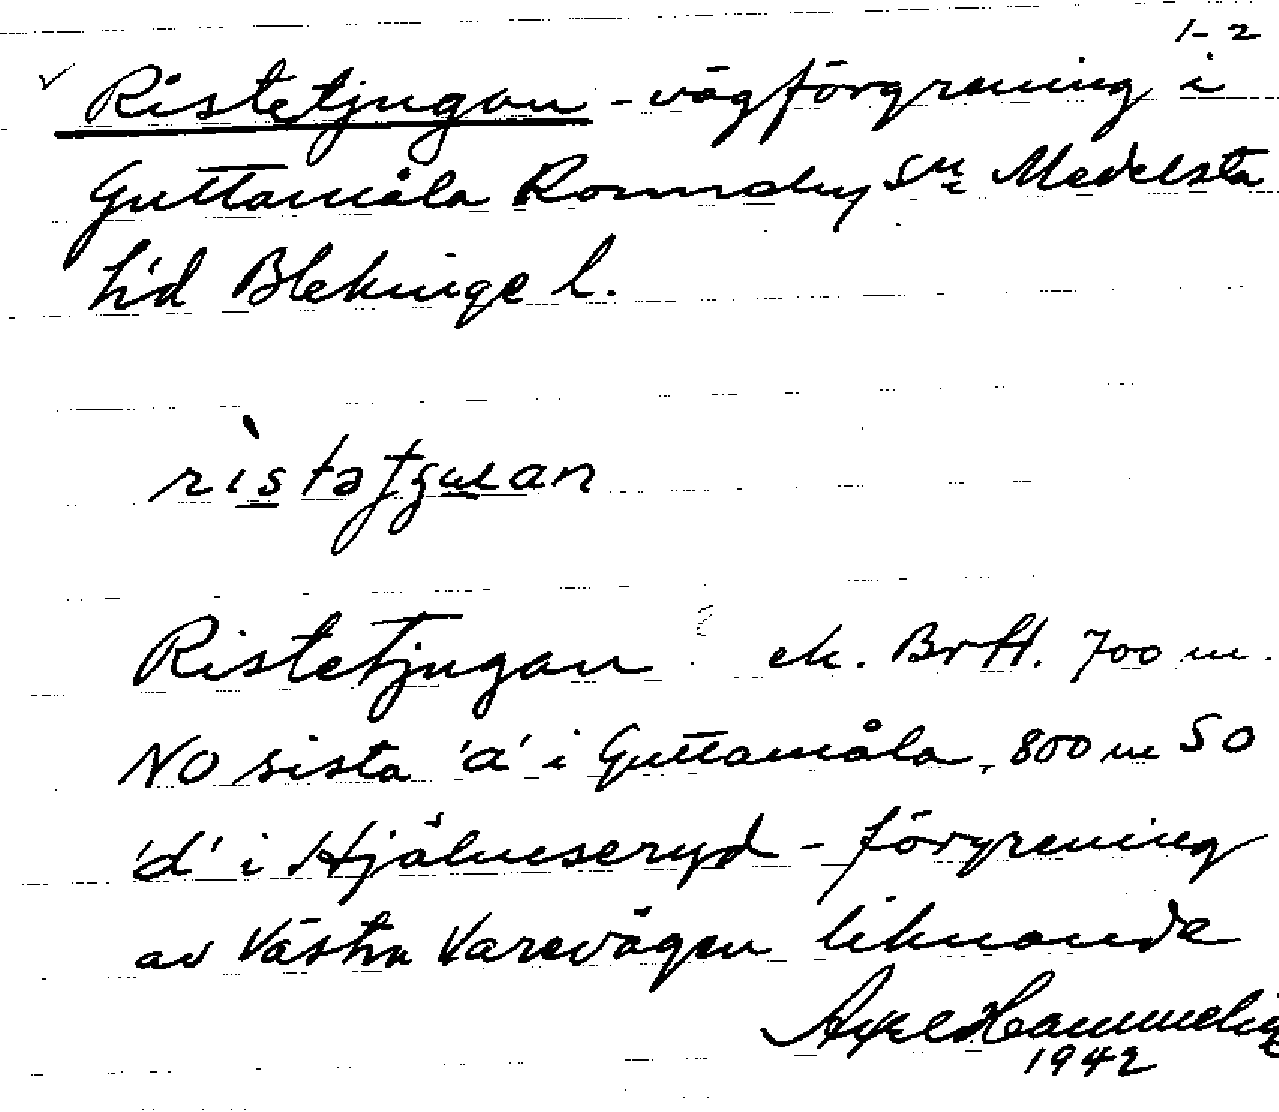 1-2
Ristetjugan - vägförgrening i
Guttamåla Ronneby sn Medelsta
h'd Blekinge l.
Ristetjugan ek. Brtt. 700 m
NO sista 'a' i Guttamåla, 800 m SO
'd' i Hjälmseryd - förgrening
av Västra Varevägen liknande
Axel
1942